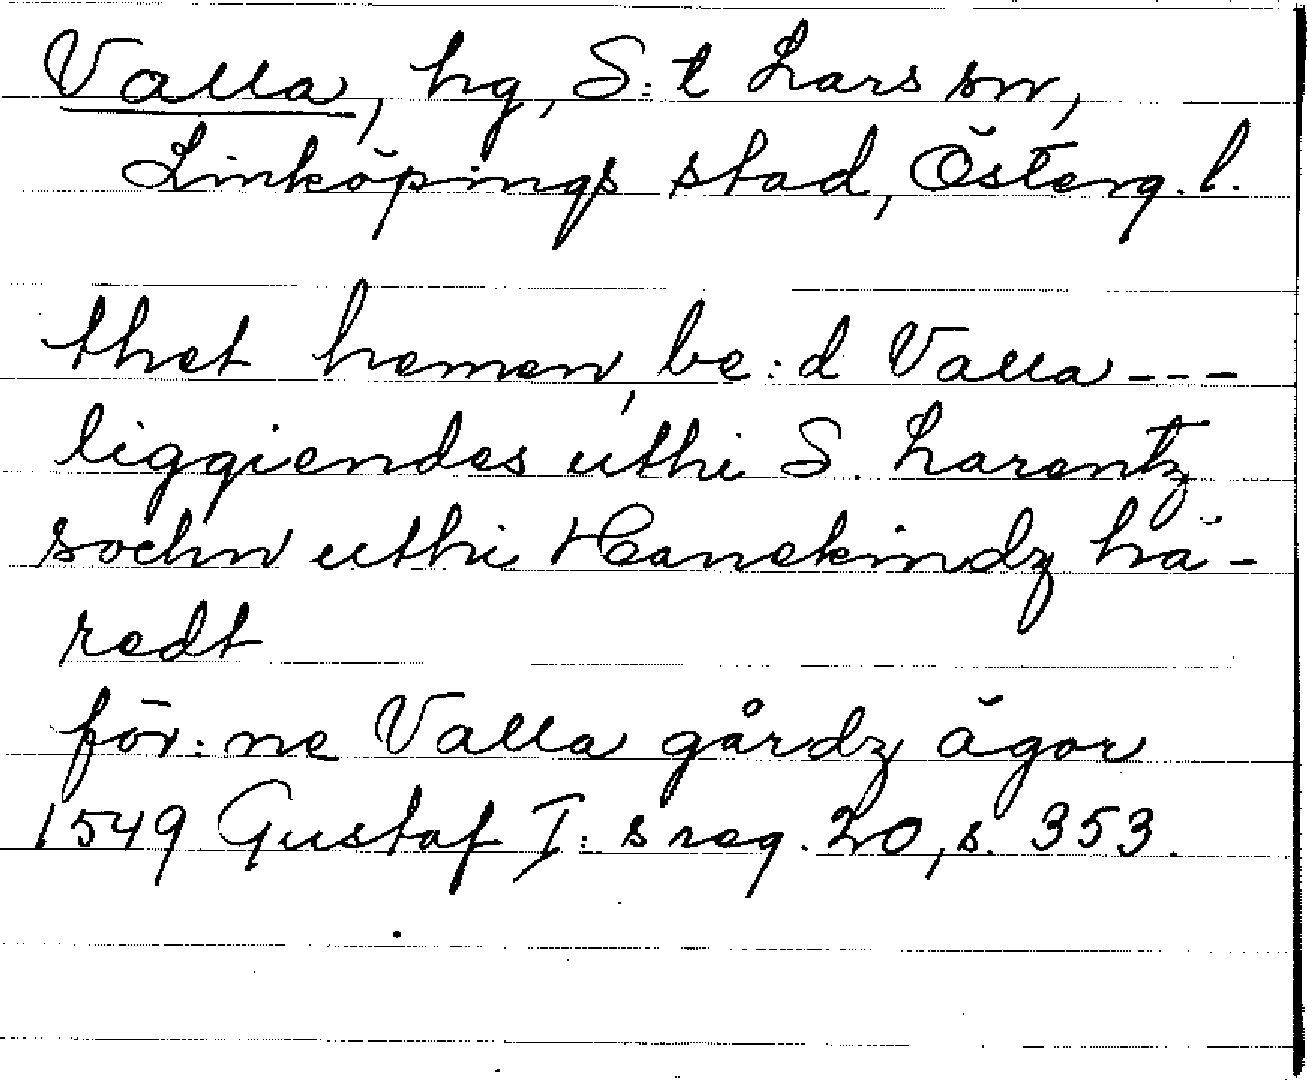 Valla, hg, S:t Lars sn,
Linköpings stad, Österg. l.
thet hemen, be:d Valla ---
liggiendes uthi S. Larentz
sochn uthi Hanekindz hä-
redt
för:ne Valla gårdz ägor
1549 Gustaf I:s reg. 20, s. 353.